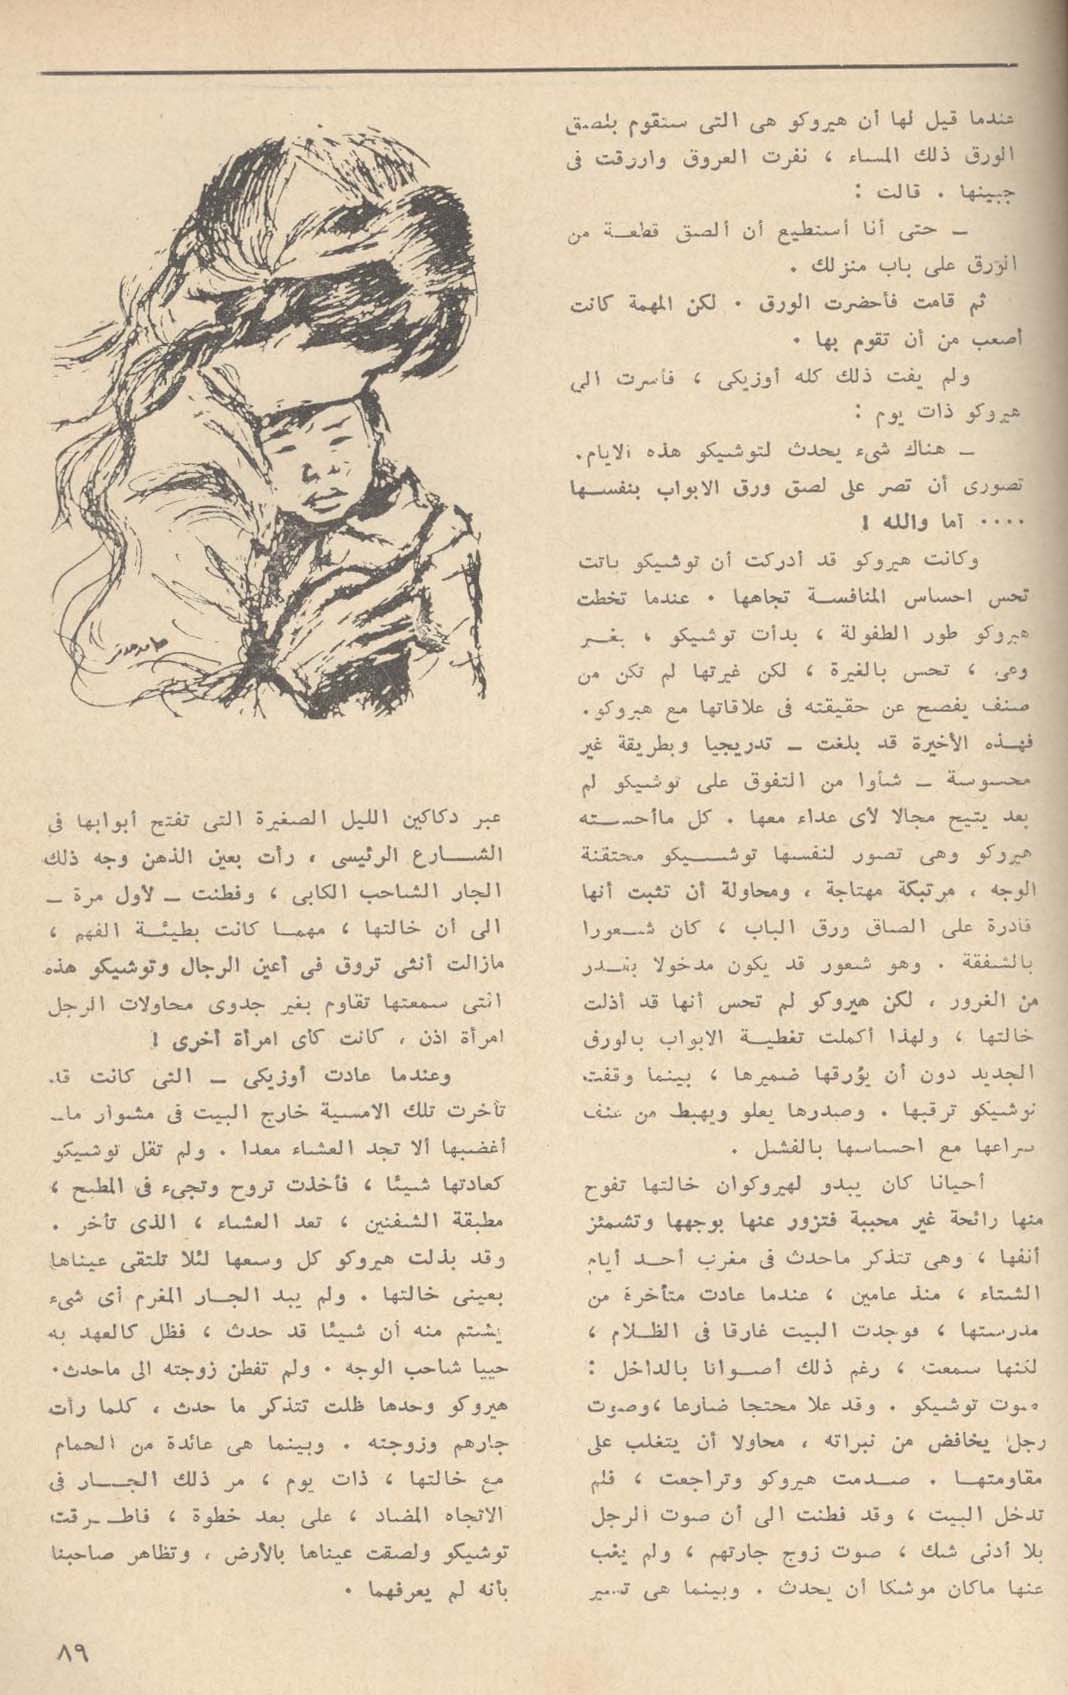 عندما قيل لها أن هيروكو هى التى ستقوم بلصق
الورق ذلك المساء ، نفرت العروق وازرقت فى
جبينها . قالت :
ـ حتى أنا أستطيع أن ألصق قطعــة من
الورق على باب منزلك .
ثم قامت فأحضرت الورق . لكن المهمة كانت
أصعب من أن تقوم بها .
ولم يفت ذلك كله أوزيكى ، فأسرت الى
هيروكو ذات يوم :
ـ هناك شىء يحدث لتوشيكو هذه الايام.
تصورى أن تصر على لصق ورق الابواب بنفســها
.... أما والله !
وكانت هيروكو قد أدركت أن توشيكو باتت
تحس احساس المنافســة تجاهها . عندما تخطت
هيروكو طور الطفولة ، بدأت توشيكو ، بغــير
وعى ، تحس بالغيرة ، لكن غيرتها لم تكن من
صنف يفصح عن حقيقته فى علاقاتها مع هيروكو.
فهــذه الأخيرة قد بلغت ـ تدريجيا وبطريقة غير
محسوسة ـ شأوا من التفوق على توشيكو لم
يعد يتيح مجالا لأى عداء معها . كل ماأحســته
هيروكو وهى تصور لنفسها توشــيكو محتقنة
الوجه ، مرتبكة مهتاجة ، ومحاولة أن تثبت أنها
قادرة على الصاق ورق الباب ، كان شــعورا
بالشفقة . وهو شعور قد يكون مدخولا بقــدر
من الغرور ، لكن هيروكو لم تحس أنها قد أذلت
خالتها ، ولهذا أكملت تغطيــة الابواب بالورق
الجديد دون أن يؤرقها ضميرها ، بينما وقفت
توشيكو ترقبها . وصدرها يعلو ويهبط من عنف
صراعها مع احساسها بالفشل .
أحيانا كان يبدو لهيروكوان خالتها تفوح
منها رائحة غير محببة فتزور عنها بوجهها وتشمئز
أنفها ، وهى تتذكر ماحدث فى مغرب أحــد أيام
الشتاء ، منذ عامين ، عندما عادت متأخرة من
مدرستها ، فوجدت البيت غارقا فى الظــلام ،
لكنها سمعت ، رغم ذلك أصــواتا بالداخل :
صوت توشيكو . وقد علا محتجا ضارعا ،وصوت
رجل يخافض من نبراته ، محاولا أن يتغلب على
مقاومتهــا . صــدمت هيروكو وتراجعت ، فلم
تدخل البيت ، وقد فطنت الى أن صوت الرجل
بلا أدنى شك ، صوت زوج جارتهم ، ولم يغب
عنها ماكان موشكا أن يحدث . وبينما هى تسير
عبر دكاكين الليل الصغيرة التى تفتح أبوابها فى
الشــارع الرئيسى ، رأت بعين الذهن وجه ذلك
الجار الشاحب الكابى ، وفطنت ـ لأول مرة ـ
الى أن خالتها ، مهمــا كانت بطيئــة الفهم ،
مازالت أنثى تروق فى أعين الرجال وتوشيكو هذه
التى سمعتها تقاوم بغير جدوى محاولات الرجل
امرأة اذن ، كانت كأى امرأة أخرى !
وعندما عادت أوزيكى ـ التى كانت قد
تأخرت تلك الامسية خارج البيت فى مشوار ماــ
أغضبها ألا تجد العشاء معدا . ولم تقل توشيكو
كعادتها شيئا ، فأخذت تروح وتجىء فى المطبخ ،
مطبقة الشفتين ، تعد العشاء ، الذى تأخر .
وقد بذلت هيروكو كل وسعها لئلا تلتقى عيناها
بعينى خالتها . ولم يبد الجــار المغرم أى شىء
يشتم منه أن شيئا قد حدث ، فظل كالعهد به
حييا شاحب الوجه . ولم تفطن زوجته الى ماحدث.
هيروكو وحدها ظلت تتذكر ما حدث ، كلما رأت
جارهم وزوجته . وبينما هى عائدة من الحمام
مع خالتها ، ذات يوم ، مر ذلك الجــار فى
الاتجاه المضاد ، على بعد خطوة ، فاطــرقت
توشيكو ولصقت عيناها بالأرض ، وتظاهر صاحبنا
بأنه لم يعرفهما .
٨٩